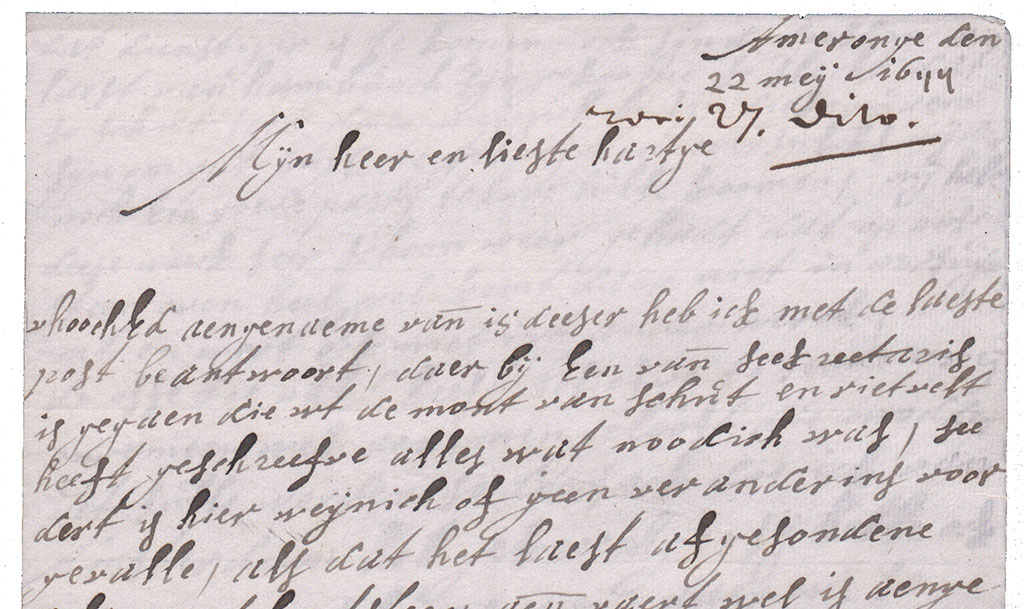 Ameronge den
22 meij 1677
27. dito.
Mijn heer en lieste hartge
uhoochEd aengenaeme van 15 deeser heb ick met de laeste
post beantwoort, daer bij Een van seeckreetaris
is gegaen die wt de mont van schut en rietvelt
heeft geschreefve alles wat noodich was, see
dert is hier weijnich of geen veranderinf voor
gevalle, als dat het laest afgesondene
vaert wel is aenge